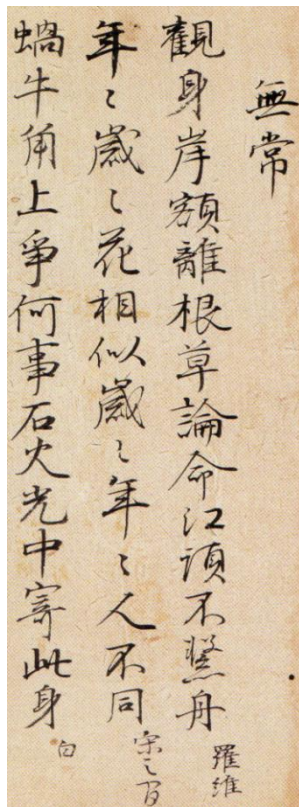 無常
觀身岸額離根草論命江頭不繫舟 羅維
年〻歲〻花相似歲〻年〻人不同 宋之問
蝸牛角上爭何事石火光中寄此身 白